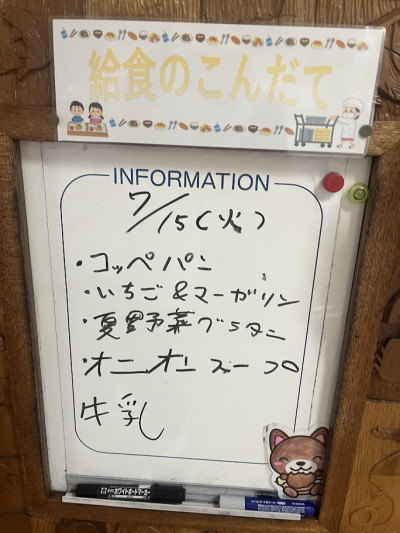 給食のこんだて
INFORMATION
7/15(火)
・コッペパン
・いちご&マーガリン
・夏野菜グラタン
・オニオンスープ
牛乳
ホワイトボードマーカー